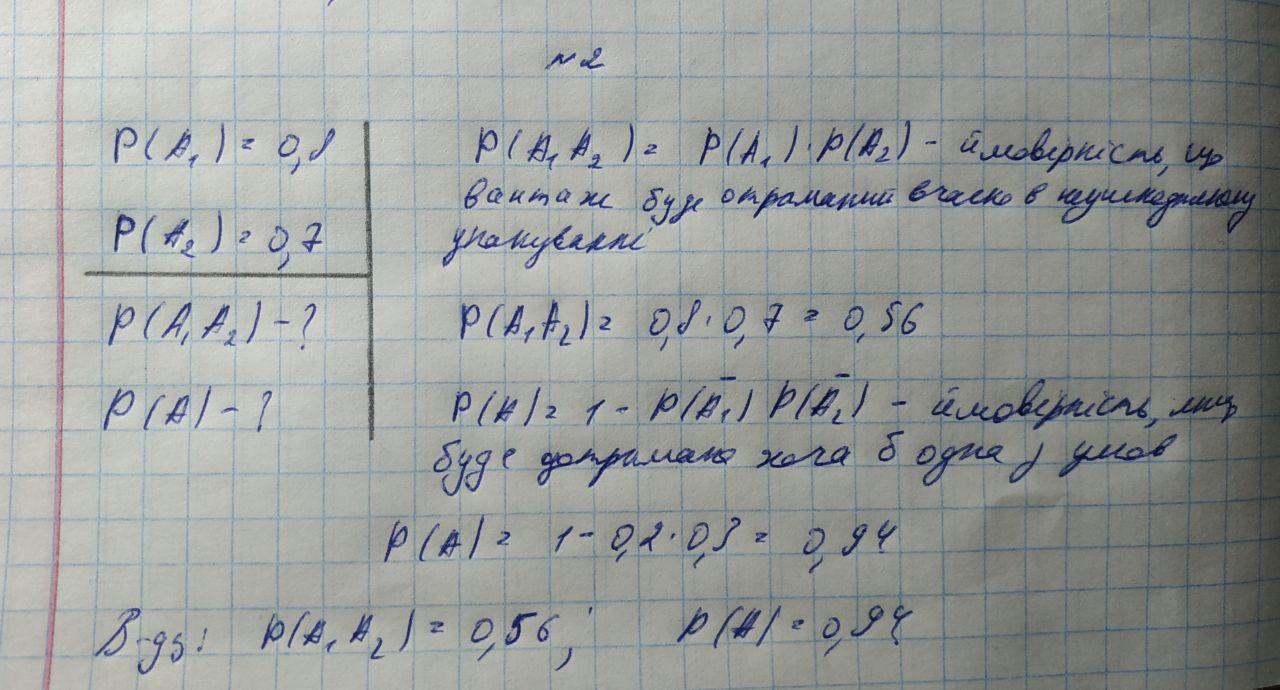 №2
P(A₁) = 0,8
P(A₂) = 0,7
P(A₁A₂) - ?
P(A) - ?
P(A₁A₂) = P(A₁)·P(A₂) - ймовірність, що
вантаж буде отриманий вчасно в неушкодженому
упакуванні
P(A₁A₂) = 0,8·0,7 = 0,56
P(A) = 1 - P(Ā₁) P(Ā₂) - ймовірність,
буде дотримана хоча б одна з умов
P(A) = 1 - 0,2·0,3 = 0,94
В-дь: P(A₁A₂) = 0,56; P(A) = 0,94